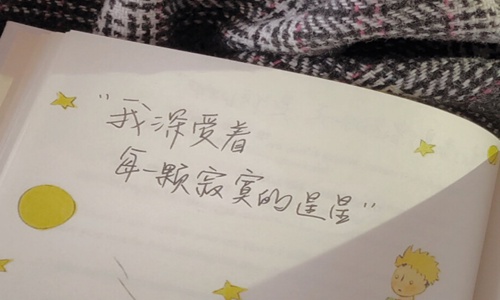 “我深受着
每一颗寂寞的星星”